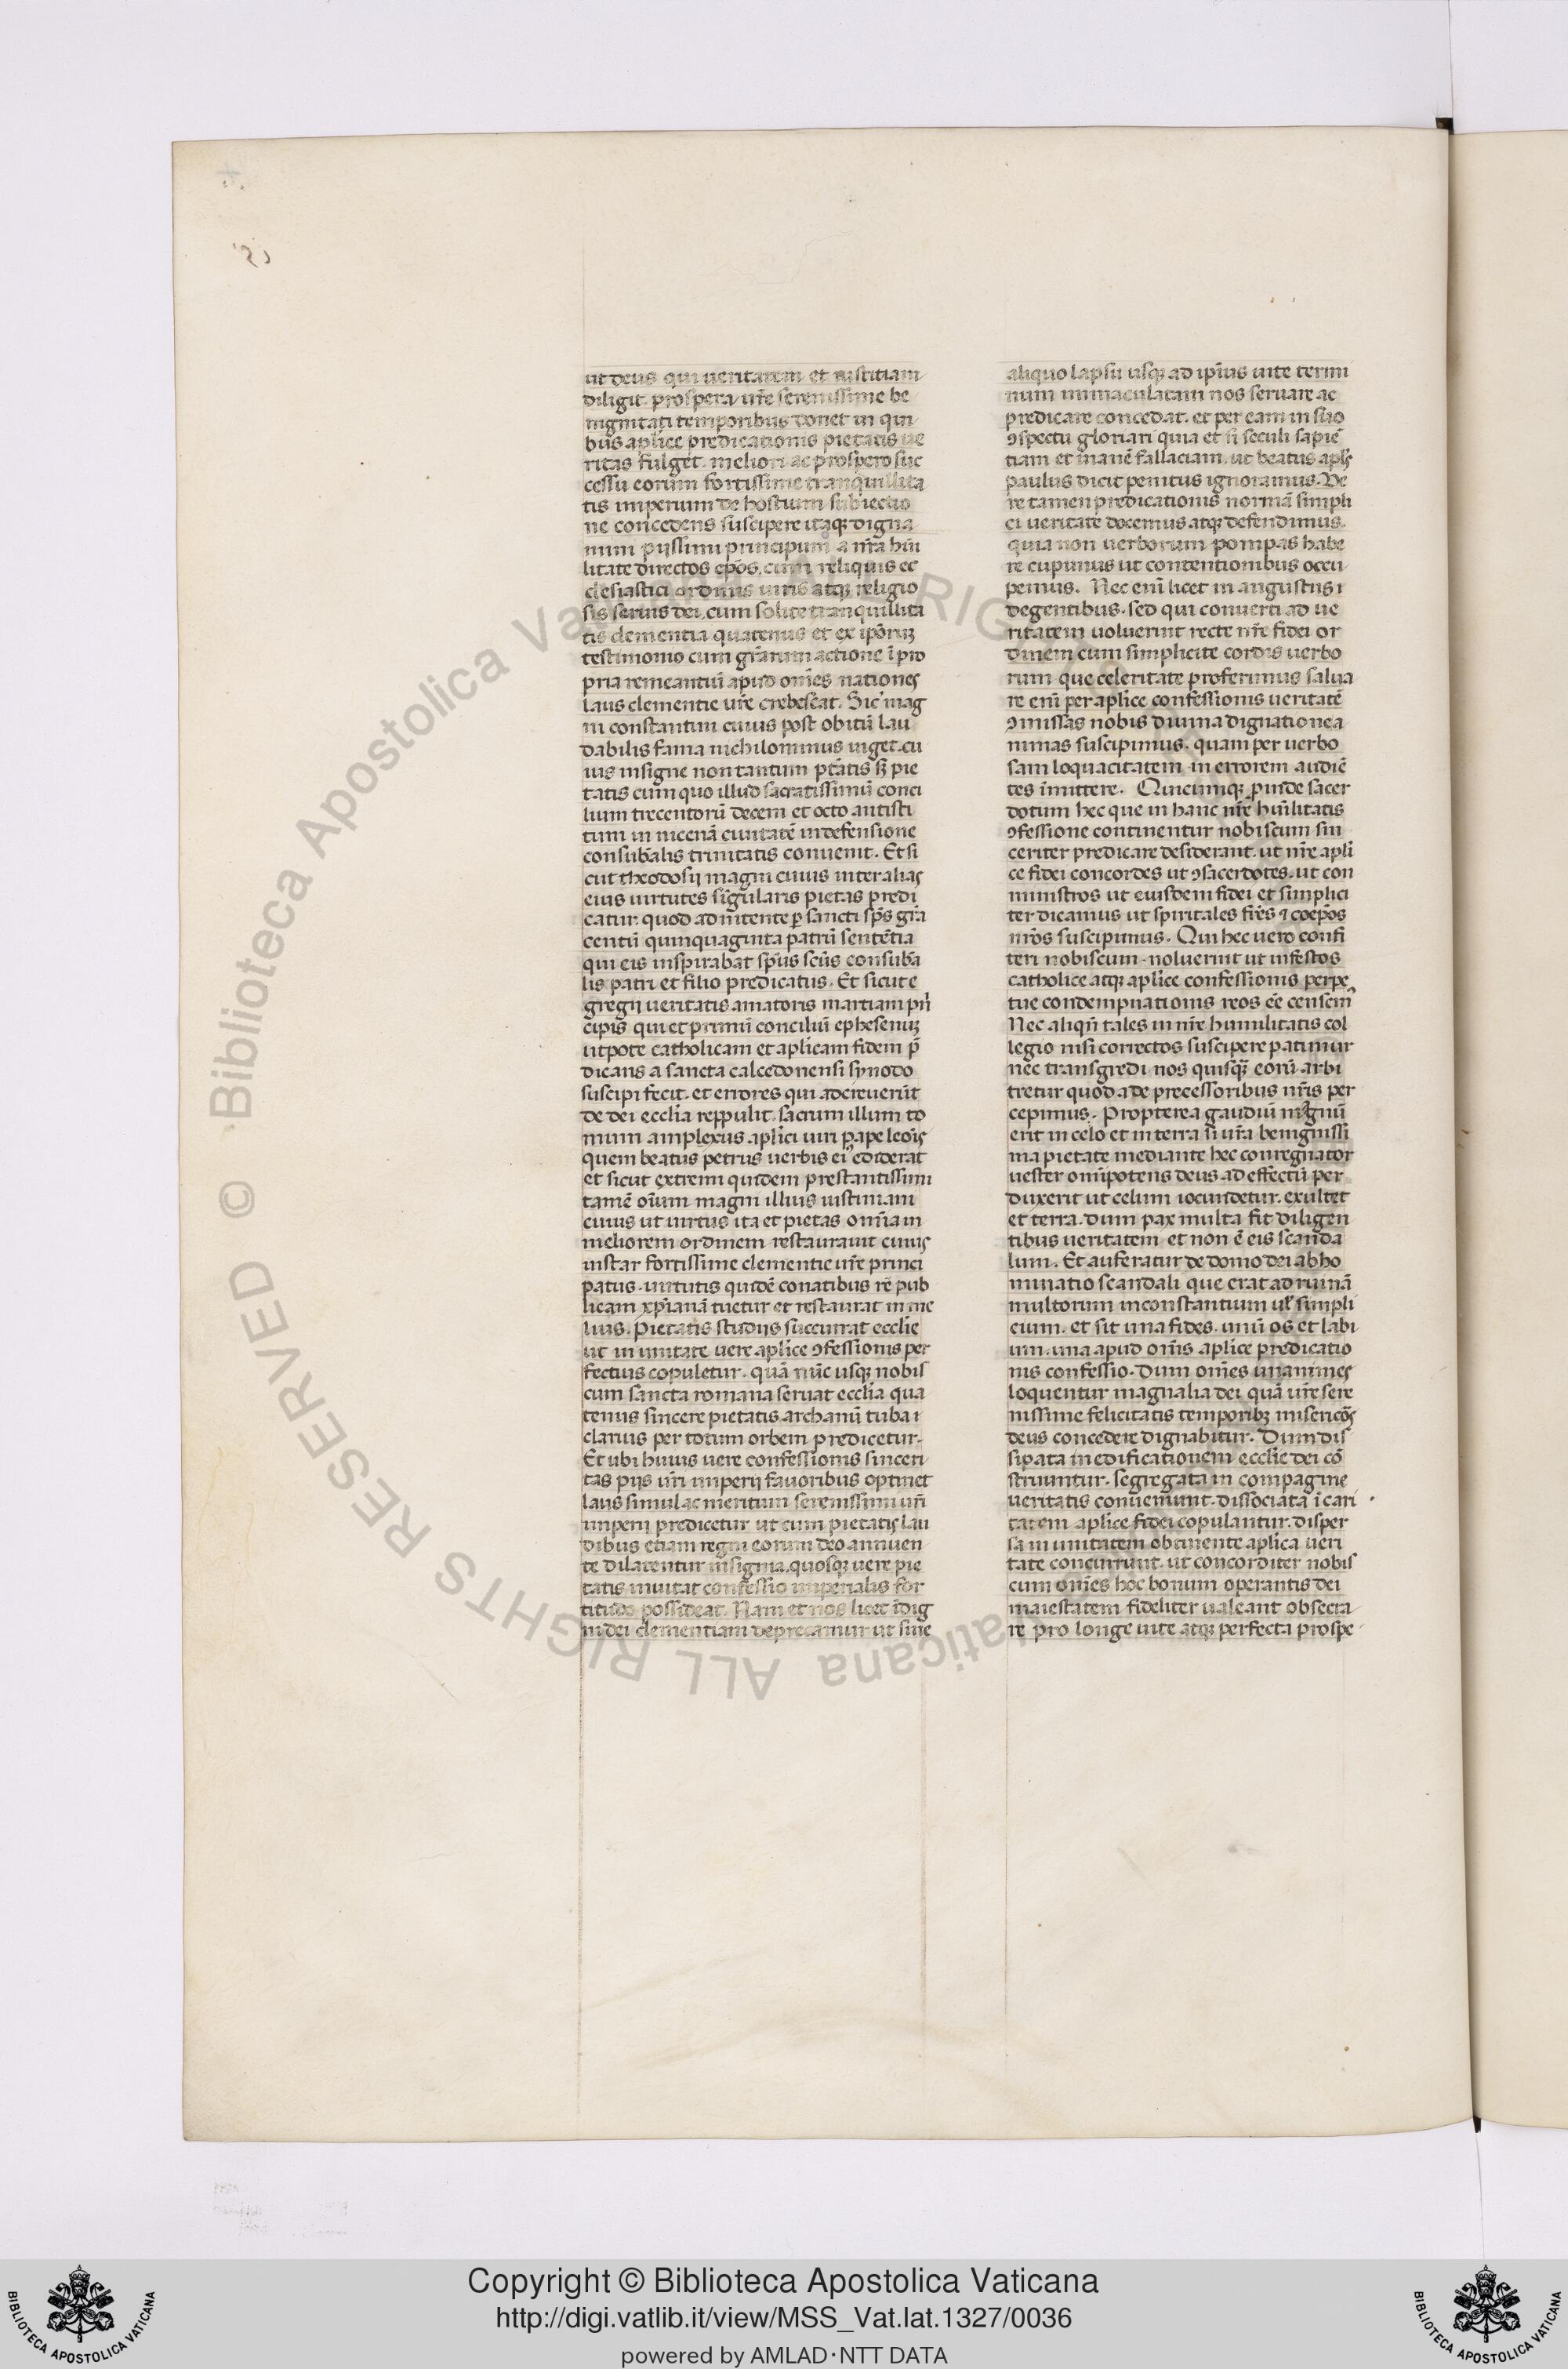 ut deus qui ueritatem et iustitiam
diligit prospera ur̃e serenissime be
nignitati temporibus donet in qui
bus aplice predicationis pietatis ue
ritas fulget. meliori ac prospero suc
cessu eorum fortissime tranquillita
tis imperium de hostium subiectio
ne concedens suscipere itaqꝫ digna
mini pijssimi principum a nr̃a hũi
litate directos ep̃os. cum reliquis ec
clesiastici ordinis uiris atqꝫ religio
sis seruis dei. cum solite tranquillita
tis clementia quatenus et ex ip̃orꝫ
testimonio cum gr̃arum actione ĩ pro
pria remeantiũ apud om̃es nationes
laus clementie ur̃e crebescat. Sic mag
ni constantini cuius post obitũ lau
dabilis fama nichilominus uiget. cu
ius insigne non tantum pt̃atis sꝫ pie
tatis cum quo illud sacratissimũ conci
lium trecentorũ decem et octo antisti
tum in nicenã ciuitatẽ in defensione
consubãlis trinitatis conuenit. Et si
cut theodosij magni cuius inter alias
eius uirtutes singularis pietas predi
catur. quod admitente ꝑ sancti sp̃s gr̃a
centũ quinquaginta patrũ sentẽtia
qui eis inspirabat sp̃us sc̃us consubã
lis patri et filio predicatus. Et sicut e
gregij ueritatis amatoris martiani pri̾
cipis qui et primũ conciliũ ephesenuꝫ
utpote catholicam et aplicam fidem p̃
dicans a sancta calcedonensi synodo
suscipi fecit. et errores qui adcreuerũt
de dei ecclia reppulit. sacrum illum to
mum amplexus aplici uiri pape leoĩs
quem beatus petrus uerbis ei᾽ ediderat
et sicut extremi quidem prestantissimi
tamẽ oĩum magni illius iustiniani
cuius ut uirtus ita et pietas omĩa in
meliorem ordinem restaurauit cuius
instar fortissime clementie ur̃e princi
patus. uirtutis quidẽ conatibus rẽ pub
licam xp̃ianã tuetur et restaurat in me
lius. Pietatis studijs succurrat ecclie
ut in unitate uere aplice ꝯfessionis per
fectius copuletur. quã nũc usqꝫ nobis
cum sancta romana seruat ecclia qua
tenus sincere pietatis archanũ tuba i
clarius per totum orbem predicetur.
Et ubi huius uere confessionis sinceri
tas pijs ur̃i imperij fauoribus optinet
laus simul ac meritum serenissimi ur̃i
imperij predicetur ut cum pietatis lau
dibus etiam regni eorum deo annuen
te dilatentur insignia. quosqꝫ uere pie
tatis inuitat confessio imperialis for
titudo possideat. Nam et nos licet ĩdig
ni dei clementiam deprecamur ut sine
aliquo lapsu usqꝫ ad ip̃ius uite termi
num immaculatam nos seruare ac
predicare concedat. et per eam in suo
ꝯspectu gloriari quia et si seculi sapiẽ
tiam et inanẽ fallaciam. ut beatus apls̃
paulus dicit penitus ignoramus. Ve
re tamen predicationis normã simpli
ci ueritate docemus atqꝫ defendimus.
quia non uerborum pompas habe
re cupimus ut contentionibus occu
pemus. Nec enĩ licet in angustijs i
degentibus. sed qui conuerti ad ue
ritatem uoluerint recte nr̃e fidei or
dinem cum simplicite cordis uerbo
rum que celeritate proferimus salua
re enĩ per aplice confessionis ueritatẽ
ꝯmissas nobis diuina dignatione a
nimas suscipimus. quam per uerbo
sam loquacitatem in errorem audiẽ
tes ĩmittere. Quicumqꝫ ꝓinde sacer
dotum hec que in hanc nr̃e hũilitatis
ꝯfessione continentur nobiscum sin
ceriter predicare desiderant. ut nr̃e apli
ce fidei concordes ut ꝯsacerdotes. ut con
ministros ut eiusdem fidei et simplici
ter dicamus ut spiritales fr̃es ⁊ coep̃os
nr̃os suscipimus. Qui hec uero confi
teri nobiscum noluerint ut infestos
catholice atqꝫ aplice confessionis perpe
tue condempnationis reos eẽ censem᾽
Nec aliqñ tales in nr̃e humilitatis col
legio nisi correctos suscipere patimur
nec transgredi nos quisqꝫ̃ eorũ arbi
tretur quod a de precessoribus nr̃is per
cepimus. Propterea gaudiũ magnũ
erit in celo et in terra si ur̃a benignissi
ma pietate mediante hec conregnator
uester omĩpotens deus ad effectũ per
duxerit ut celum iocundetur. exultet
et terra. dum pax multa fit diligen
tibus ueritatem et non ẽ eis scanda
lum. Et auferatur de domo dei abho
minatio scandali que erat ad ruinã
multorum inconstantium ul̃ simpli
cium. et sit una fides. unũ os et labi
um. una apud om̃s aplice predicatio
nis confessio. Dum om̃es unanimes
loquentur magnalia dei quã ur̃e sere
nissime felicitatis temporibꝫ misericõs
deus concedere dignabitur. Dum dis
sipata in edificationem ecclie dei cõ
struuntur. segregata in compagine
ueritatis conueniunt. dissociata ĩ cari
tatem aplice fidei copulantur. disper
sa in unitatem obtinente aplica ueri
tate concurrunt. ut concorditer nobis
cum om̃es hoc bonum operantis dei
maiestatem fideliter ualeant obsecra
re pro longe uite atqꝫ perfecta prospe
© Biblioteca Apostolica Vaticana ALL RIGHTS RESERVED
Copyright © Biblioteca Apostolica Vaticana
http://digi.vatlib.it/view/MSS_Vat.lat.1327/0036
powered by AMLAD·NTT DATA
BIBLIOTECA APOSTOLICA VATICANA
BIBLIOTECA APOSTOLICA VATICANA